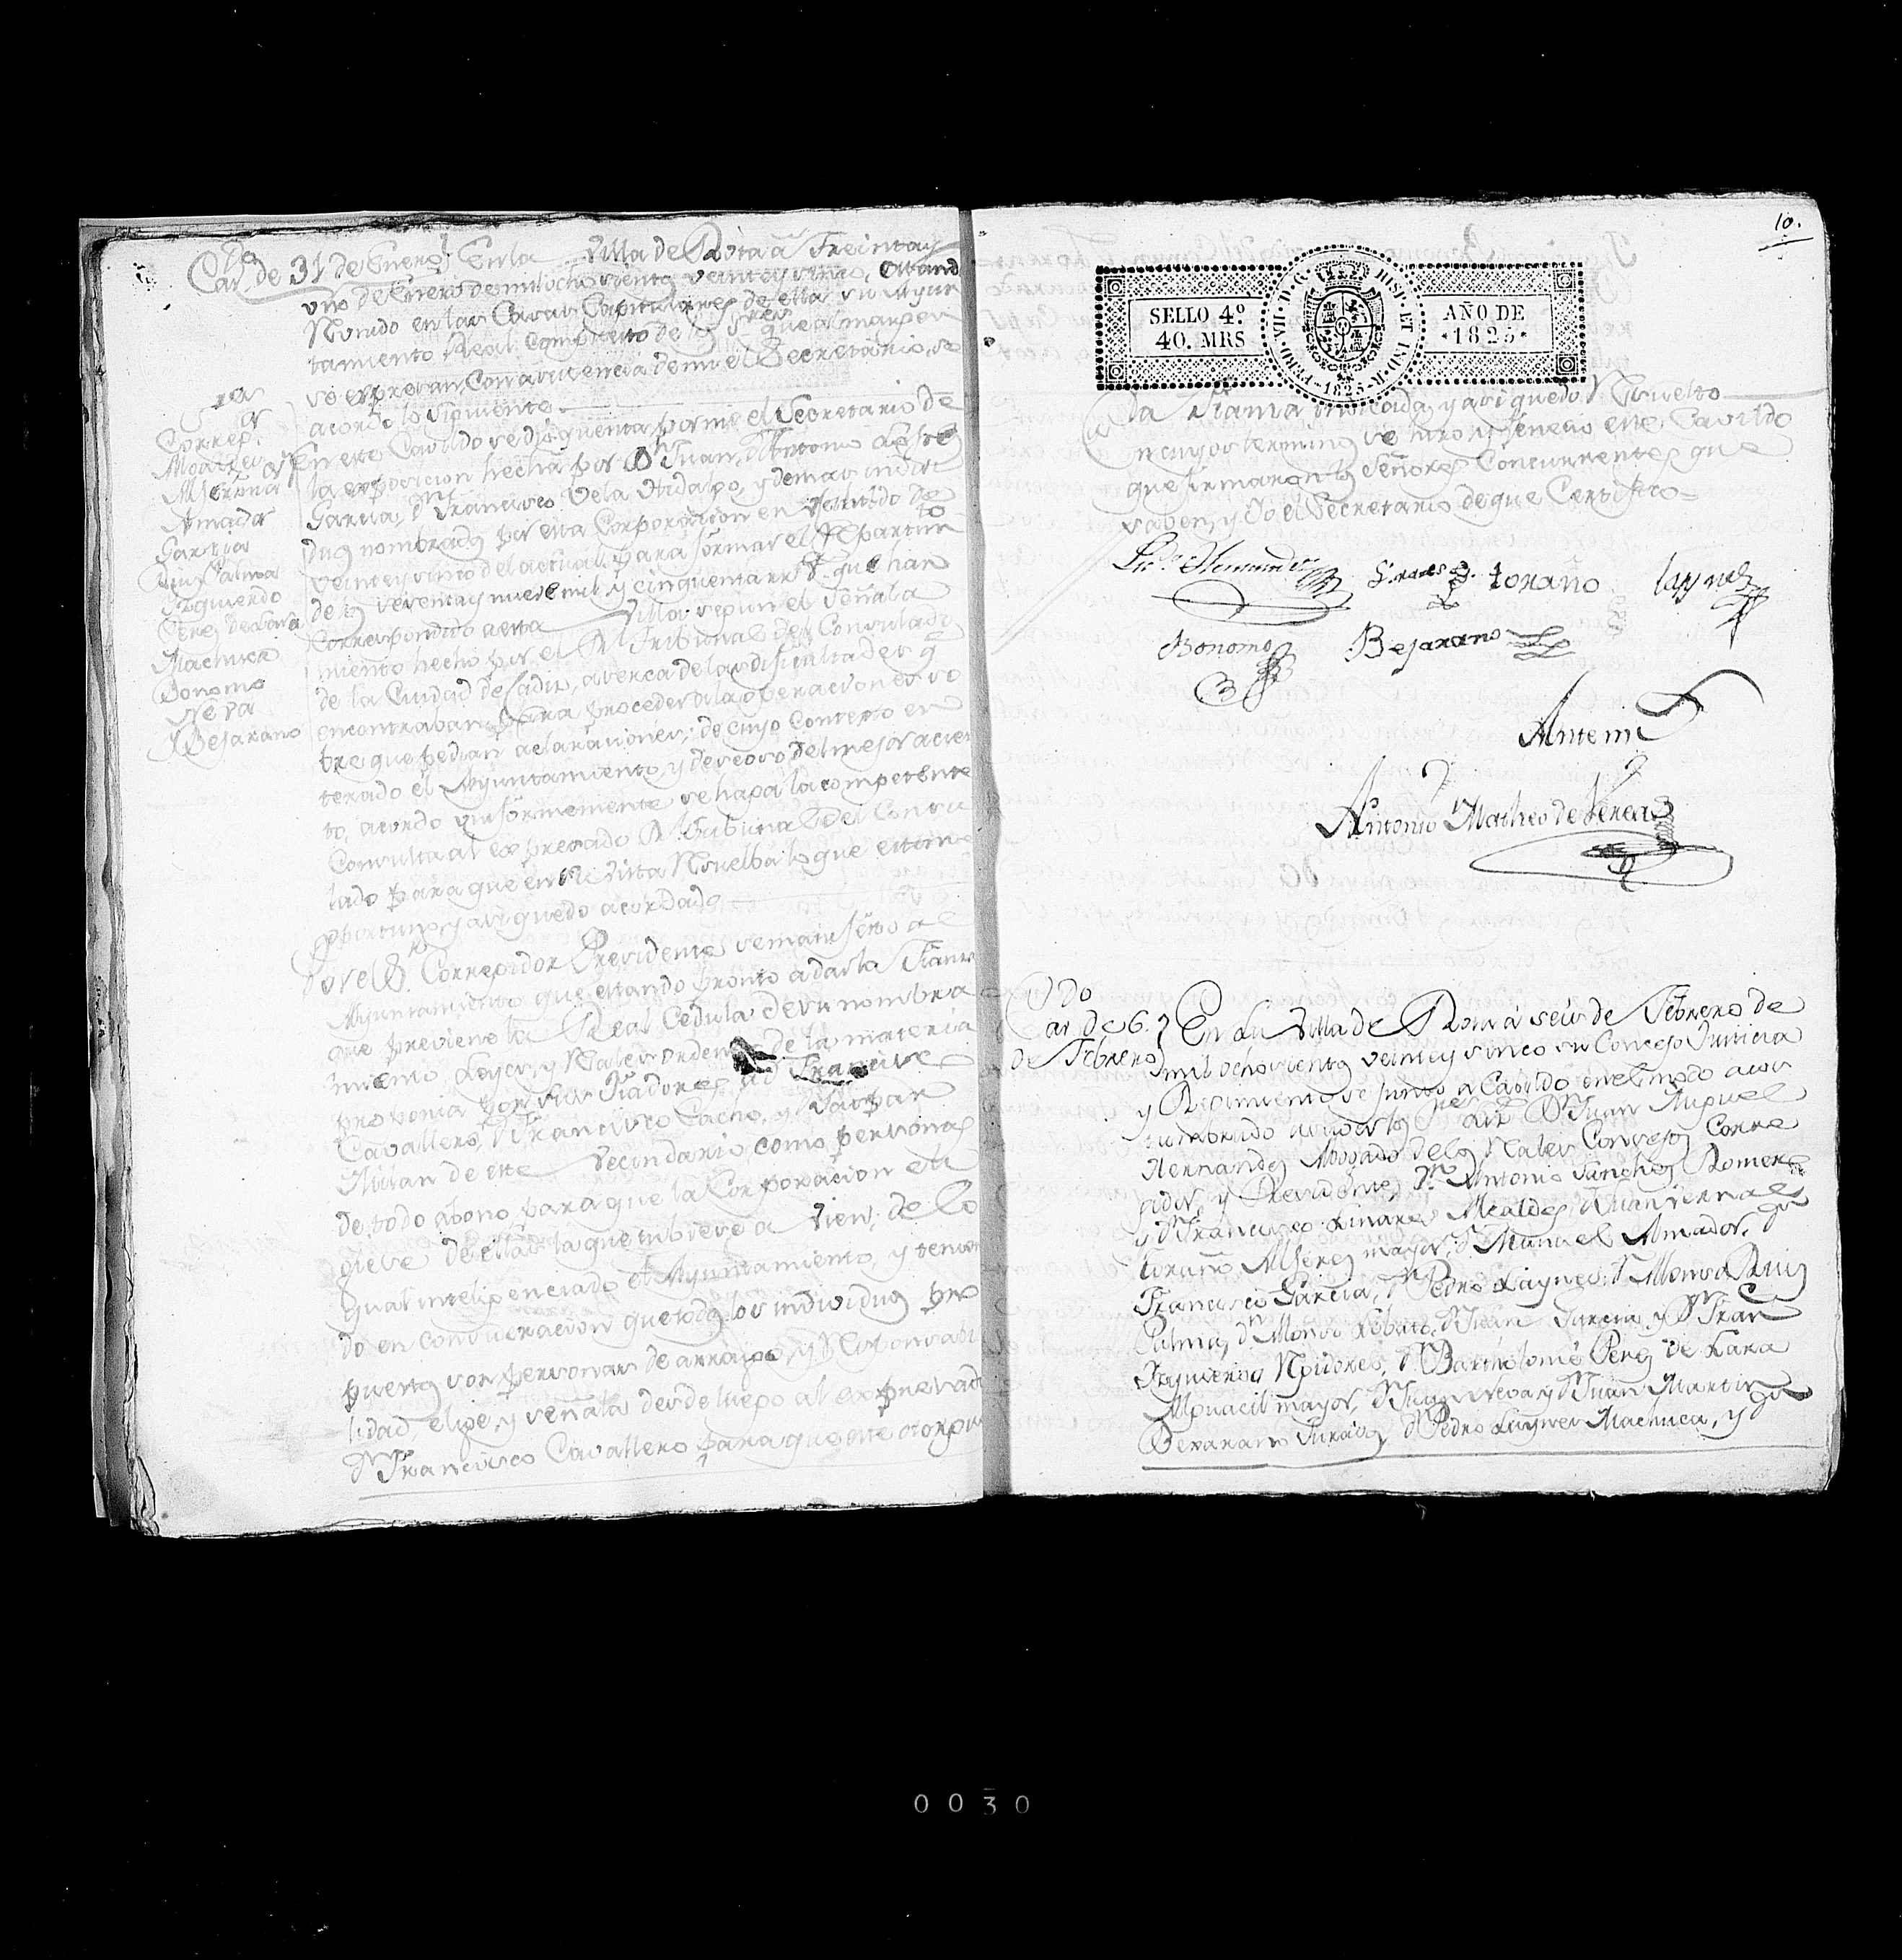 Cav.do de 31 de Enero} En la Villa de Rota a Treinta y
uno de Enero de mil ochocientos veinte y cinco, estand
Reunido en las Casas Capitulares de ella su Ayun
tamiento Real compuesto de los S.res que al margen
se expresan con asistencia de mi el Secretario, se
acordó lo siguiente
S.res
Correg.or
Alcaldes
Alferez
Amador
Garzia
Ruiz Palma
Yzquierdo
Perez de Lara
Machuca
Bonomo
Neva
Bejarano
En este Cavildo se dio quenta por mi el Secretario de
la exposicion hecha por D.n Juan Antonio Lopez
Garcia, D.n Francisco Vela Hidalgo, y demas indivi
duos nombrados por esta Corporacion en Cabildo de
veinte y cinco del actual para formar el Repartim.to
de los setenta y nueve mil y cinquenta rr.s v.n que han
correspondido a esta Villa segun el señala
miento hecho por el R.l Tribunal del Consulado
de la Ciudad de Cadiz, acerca de las dificultades q.e
encontraban para proceder a la operacion es so
bre que pedian aclaraciones; de cuyo contexto en
terado el Ayuntamiento, y deseoso del mejor acier
to, acordó uniformemente se haga la competente
Consulta al expresado R.l Tribunal del Consu
lado para que en su vista Resuelba lo que estime
oportuno, y asi quedó acordado
Por el S.or Corregidor Presidente se manifestó al
Ayuntamiento que estando pronto a dar la Fianza
que previene la Real Cedula de su nombra
miento, Leyes, y Reales ordenes de la materia
proponia por sus Fiadores a D.n Francisco
Cavallero, D.n Francisco Caeño, y Gaspar
Milan de este Vecindario, como personas
de todo abono para que la Corporacion eli
giese de ellas la que tubiere a bien; de lo
qual inteligenciado el Ayuntamiento, y tenien
do en consideracion que todos los individuos pro
puestos son personas de arraigo, y Responsabi
lidad, elige, y señala desde luego al expresado
D.n Francisco Cavallero para que otorgue
10.
SELLO 4º
40. MRS
FERD · VII · D · G · HISP · ET IND · R · 1825
AÑO DE
*1825*
la Fianza indicada, y asi quedó Resuelto
En cuyos terminos se hizo y fenecio este Cavildo
que firmaron los Señores Concurrentes que
saben, y Yo el Secretario de que Certifico=
L.do Hernandez Linares Toraño Laynez
Bonomo Bejarano
Antemi
Antonio Matheo de Veneas
Cav.do de 6.} En la Villa de Rota á seis de Febrero de
de Febrero} mil ochocientos veinte y cinco su Concejo Justicia
y Regimiento se juntó a Cabildo en el modo acos
tumbrado a saber los S.res D.n Juan Miguel
Hernandez Abogado de los Reales Consejos Corre
gidor, y Presidente, D.n Antonio Sanchez Romero
y D.n Francisco Linares Alcaldes, D.n Juan Bernal
Toraño Alferez mayor, D.n Manuel Amador, D.n
Francisco Garcia, D.n Pedro Laynez, D.n Alonso Ruiz
Palma, D.n Alonso Roberto, D.n Juan Garcia, y D.n Fran
Yzquierdo Regidores, D.n Bartholomé Perez de Lara
Alguacil mayor, D.n Juan Neva y D.n Juan Martin
Bejarano Jurados, D.n Pedro Laynez Machuca, y D.n
0030